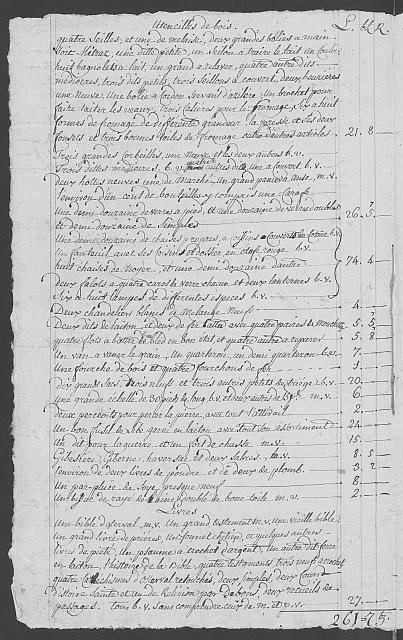 Utencilles de bois. L. btz. R.
quatre Seilles, une de meleise, deux grandes bolies a main
une ditte petite, un Seilon a traire le lait un couloir
huit bagnolets a lait, un grand a relaver, quatre autre dits
mediocres, trois dits petits, trois Seillons a couvert, deux beurieres
une neuve, une botte a cordon servant d'ovliere, un brochet pour
faire laiter les veaux, trois faitieres pour le fromage, Six a huit
formes de fromage de differente grandeur la presse et Ses deux
fonsets et trois bonnes toiles de fromage outre d'autres articles. 21. 8
Trois grandes Corbeilles, une neuve et les deux autres b.v.
trois dittes mediocres, b.v. autres ditte une a Couvert b.v.
deux hottes neuves une de Marche, un grand panier d'anse m.v.
l'environ d'un cent de bouteilles y compris une Carafe
Une demi douzaine de verres a pied, et une douzaine de verres doubles 26. 5
et demi douzaine de Simples
Une demi douzaine de chaises
Un fauteuil avec les coisins et dossier en etofe rouge b.v.
huit chaises de Noyer, et une demi douzaine d'autre 74. 4
deux falots a quatre carot de verre chacun et deux lanternes b.v.
Six a huit lampes de differentes especes b.v.
Deux chandeliers blancs de Melange Neufs 4.
Deux dits de laiton, et deux de fer battu avec quatre paires de mouchet. 5. 5
quatre flots a battre le bled en bon etat, et quatre autre a reparer 5. 8
Un van a vaner le grain, un quarteron, un demi quarteron b.v. 7.
Une fourche de bois et quatre fourchons de fer 3.
dix grands Sacs, trois neufs et trois autres petits de triege b.v. 20.
Une grande echelle de 30 pieds de long b.v. et deux autres de m.v. 6.
deux percoirs pour percer la pierre avec tout l'attirail 2.
Un bon fusil garni en laiton avec tout son assortiment 24.
Un dit pour la guerre, et un fort de chasse m.v. 15.
Gibesiere, Giberne, havre sac, et deux Sabres, b.v. 8. 5
l'environ de deux livres de poudre et de deux de plomb. 3. 2
Un par-pluie de Soye, presque neuf 8.
Un de raye de laine double de bone toile m.v. 2.
Livres
Une bible d'Osterval m.v. Un grand testament m.v. une vieille bible,
un grand livre de prieres, un et quelques autres
livres de piété, un psaume a crochet d'argent, un autre dit ferré
en laiton, l'histoire de la bible, quatre testaments trois neufs a crochet
quatre Catechismes d'Osterval retouchés, deux Simples, deux Cours
d'istoire Sainte et un de Religion par deux recueils de
passages. tous b.v. sans comprendre ceux de m. et p.v. 27.
261. 7. 5.